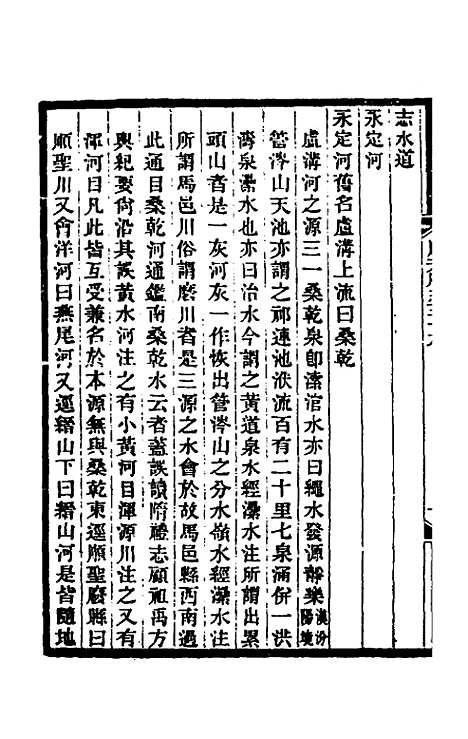 志水道
永定河
永定河舊名盧溝上流曰桑乾
盧溝河之源三一桑乾泉卽溹涫水亦曰繩水發源靜樂漢汾陽境
管涔山天池亦謂之祁連池洑流百有二十里七泉涌併一洪
濤泉㶟水也亦曰治水今謂之黃道泉水經㶟水注所謂出累
頭山者是一灰河灰一作恢出管涔山之分水嶺水經㶟水注
所謂馬邑川俗謂磨川者是三源之水會於故馬邑縣西南過
此通目桑乾河通鑑南桑乾水云者蓋誤讀隋禮志顧祖禹方
輿紀要尙沿其誤黃水河注之有小黃河目渾源川注之又有
渾河曰凡此皆互受兼名於本源無與桑乾東逕順聖廢縣曰
順聖川又會洋河曰燕尾河又逕䃈山下曰䃈山河是皆隨地